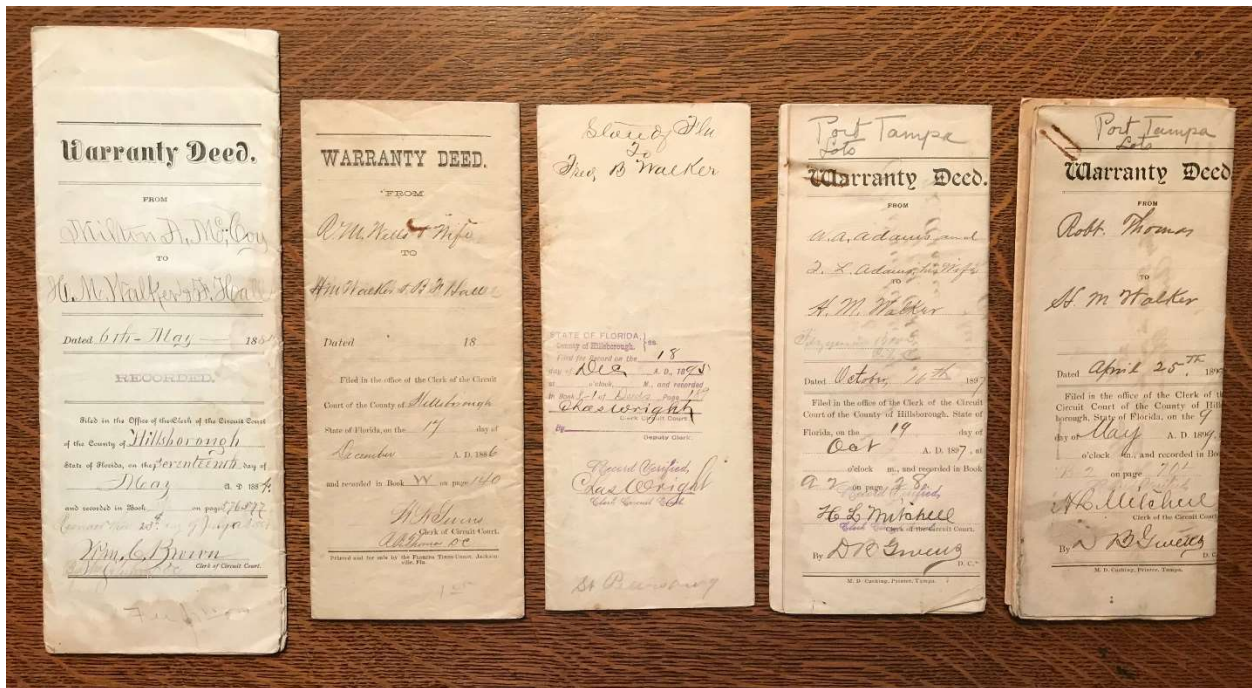 Warranty Deed.
FROM
Milton A. McCoy
TO
H. M. Walker & F. Hall
Dated 6th May 188
RECORDED.
Filed in the Office of the Clerk of the Circuit Court
of the County of Hillsborough
State of Florida, on the Seventeenth day of
May A. D 188
and recorded in Book on pages 76 & 77
Wm. C. Brown
Clerk of Circuit Court.
WARRANTY DEED.
FROM
A M Wells & Wife
TO
H M Walker & B F Hall
Dated 18
Filed in the office of the Clerk of the Circuit
Court of the County of Hillsborough
State of Florida, on the 17 day of
December A. D. 1886
and recorded in Book W on page 140
Clerk of Circuit Court.
A. B. Thomas DC
Printed and for sale by the Florida Times-Union, Jackson-
ville, Fla.
State of Fla
To
Fred, B Walker
STATE OF FLORIDA, } ss.
County of Hillsborough.
Filed for Record on the 18
day of Dec A. D., 1895
at o'clock, M., and recorded
in Book of Deeds Page
Chas Wright
Clerk Circuit Court.
By
Deputy Clerk.
Record Verified,
Chas Wright
Clerk Circuit Court.
St Petersburg
Port Tampa
Lots
Warranty Deed.
FROM
W. A. Adams and
J. L. Adams, his Wife
TO
H. M. Walker
Dated October 16th 1897
Filed in the office of the Clerk of the Circuit
Court of the County of Hillsborough, State of
Florida, on the 19 day of
Oct A. D. 1897, at
o'clock m., and recorded in Book
A 2 on page 28
Record Verified,
H L Mitchell
Clerk of the Circuit Court.
By D B Givens
D. C.
M. D. Cushing, Printer, Tampa.
Port Tampa
Lots
Warranty Deed
FROM
Robt. Thomas
TO
H M Walker
Dated April 25th 189
Filed in the office of the Clerk of th
Circuit Court of the County of Hills
borough, State of Florida, on the 9
day of May A. D. 1899,
o'clock m., and recorded in Boo
on page
H L Mitchell
Clerk of the Circuit Court.
By D B Givens
D. C.
M. D. Cushing, Printer, Tampa.